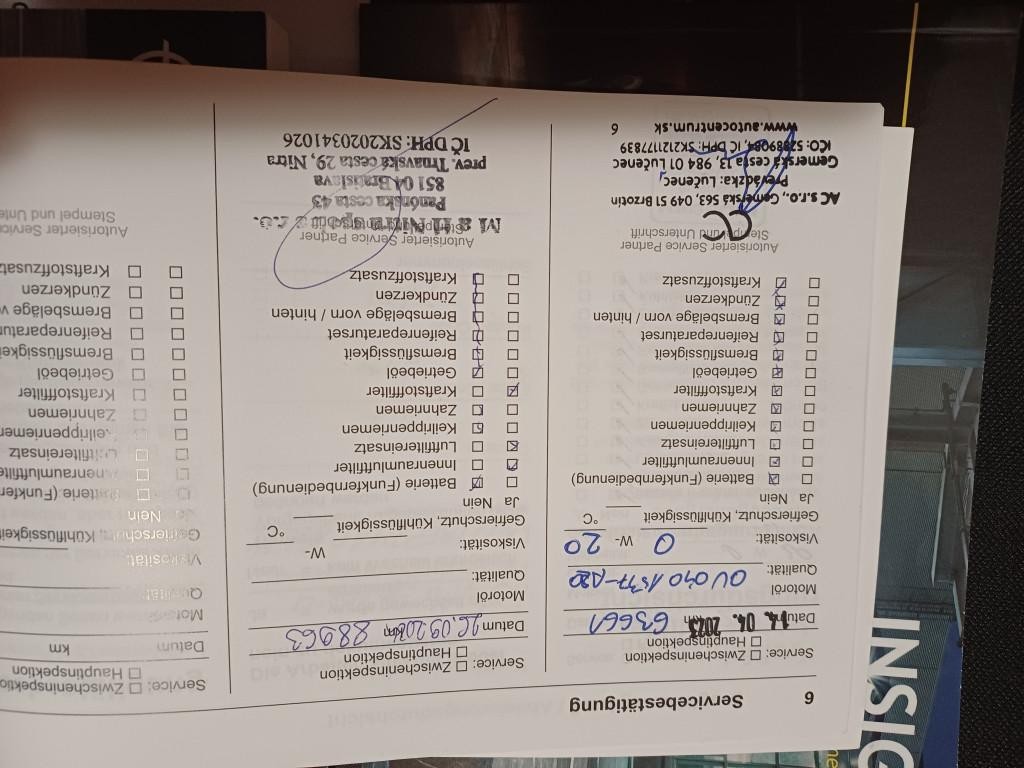 6 Servicebestätigung
Service: Zwischeninspektion
Hauptinspektion
Datum 14. 04. 2023 63661 km
Motoröl
Qualität:
Viskosität: 0 W- 20
Gefrierschutz, Kühlflüssigkeit °C
Ja Nein
Batterie (Funkfernbedienung)
Innenraumluftfilter
Luftfiltereinsatz
Keilrippenriemen
Zahnriemen
Kraftstofffilter
Getriebeöl
Bremsflüssigkeit
Reifenreparaturset
Bremsbeläge vorn / hinten
Zündkerzen
Kraftstoffzusatz
Autorisierter Service Partner
Stempel und Unterschrift
AC s.r.o., Gemerská 563, 049 51 Brzotín
Prevádzka: Lučenec
Gemerská cesta 13, 984 01 Lučenec
IČO: 52889084, IČ DPH: SK2121177839
www.autocentrum.sk 6
Service: Zwischeninspektion
Hauptinspektion
Datum km 88963
Motoröl
Qualität:
Viskosität: W-
Gefrierschutz, Kühlflüssigkeit °C
Ja Nein
Batterie (Funkfernbedienung)
Innenraumluftfilter
Luftfiltereinsatz
Keilrippenriemen
Zahnriemen
Kraftstofffilter
Getriebeöl
Bremsflüssigkeit
Reifenreparaturset
Bremsbeläge vorn / hinten
Zündkerzen
Kraftstoffzusatz
Autorisierter Service Partner
Panónska cesta 43
851 04 Bratislava
prev. Trnavská cesta 29, Nitra
IČ DPH: SK2020341026
Service: Zwischeninspektio
Hauptinspektion
Datum km
Motoröl
Qualität:
Viskosität:
Gefrierschutz, Kühlflüssigkei
Nein
Batterie (Funkfer
Innenraumluftfilte
Luftfiltereinsatz
Keilrippenrieme
Zahnriemen
Kraftstofffilter
Getriebeöl
Bremsflüssigkei
Reifenreparatu
Bremsbeläge v
Zündkerzen
Kraftstoffzusatz
Autorisierter Service
Stempel und Unte
INSIG